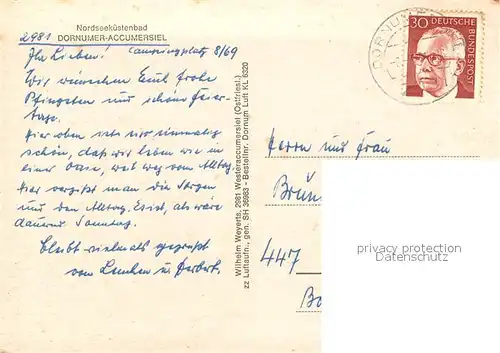 Nordseeküstenbad
DORNUMER-ACCUMERSIEL
2981
Campingplatz 8/69
Ihr Lieben!
Wir wünschen Euch frohe
Pfingsten und schöne Feier-
tage.
Hier oben ist es einmalig
schön, daß wir leben wie in
einer Oase, weit weg vom Alltag.
Hier vergißt man die Sorgen
und den Alltag. Es ist, als wäre
dauernd Sonntag.
Bleibt vielmals gegrüßt
von
Herbert.
Wilhelm Weyerts, 2981 Westeraccumersiel (Ostfriesl.)
zz Luftaufn., gen. SH 36983 - Bestellnr. Dornum Luft KL 6320
DORNUM
30 DEUTSCHE
BUNDESPOST
Herrn und Frau
Brün
447
privacy protection
Datenschutz